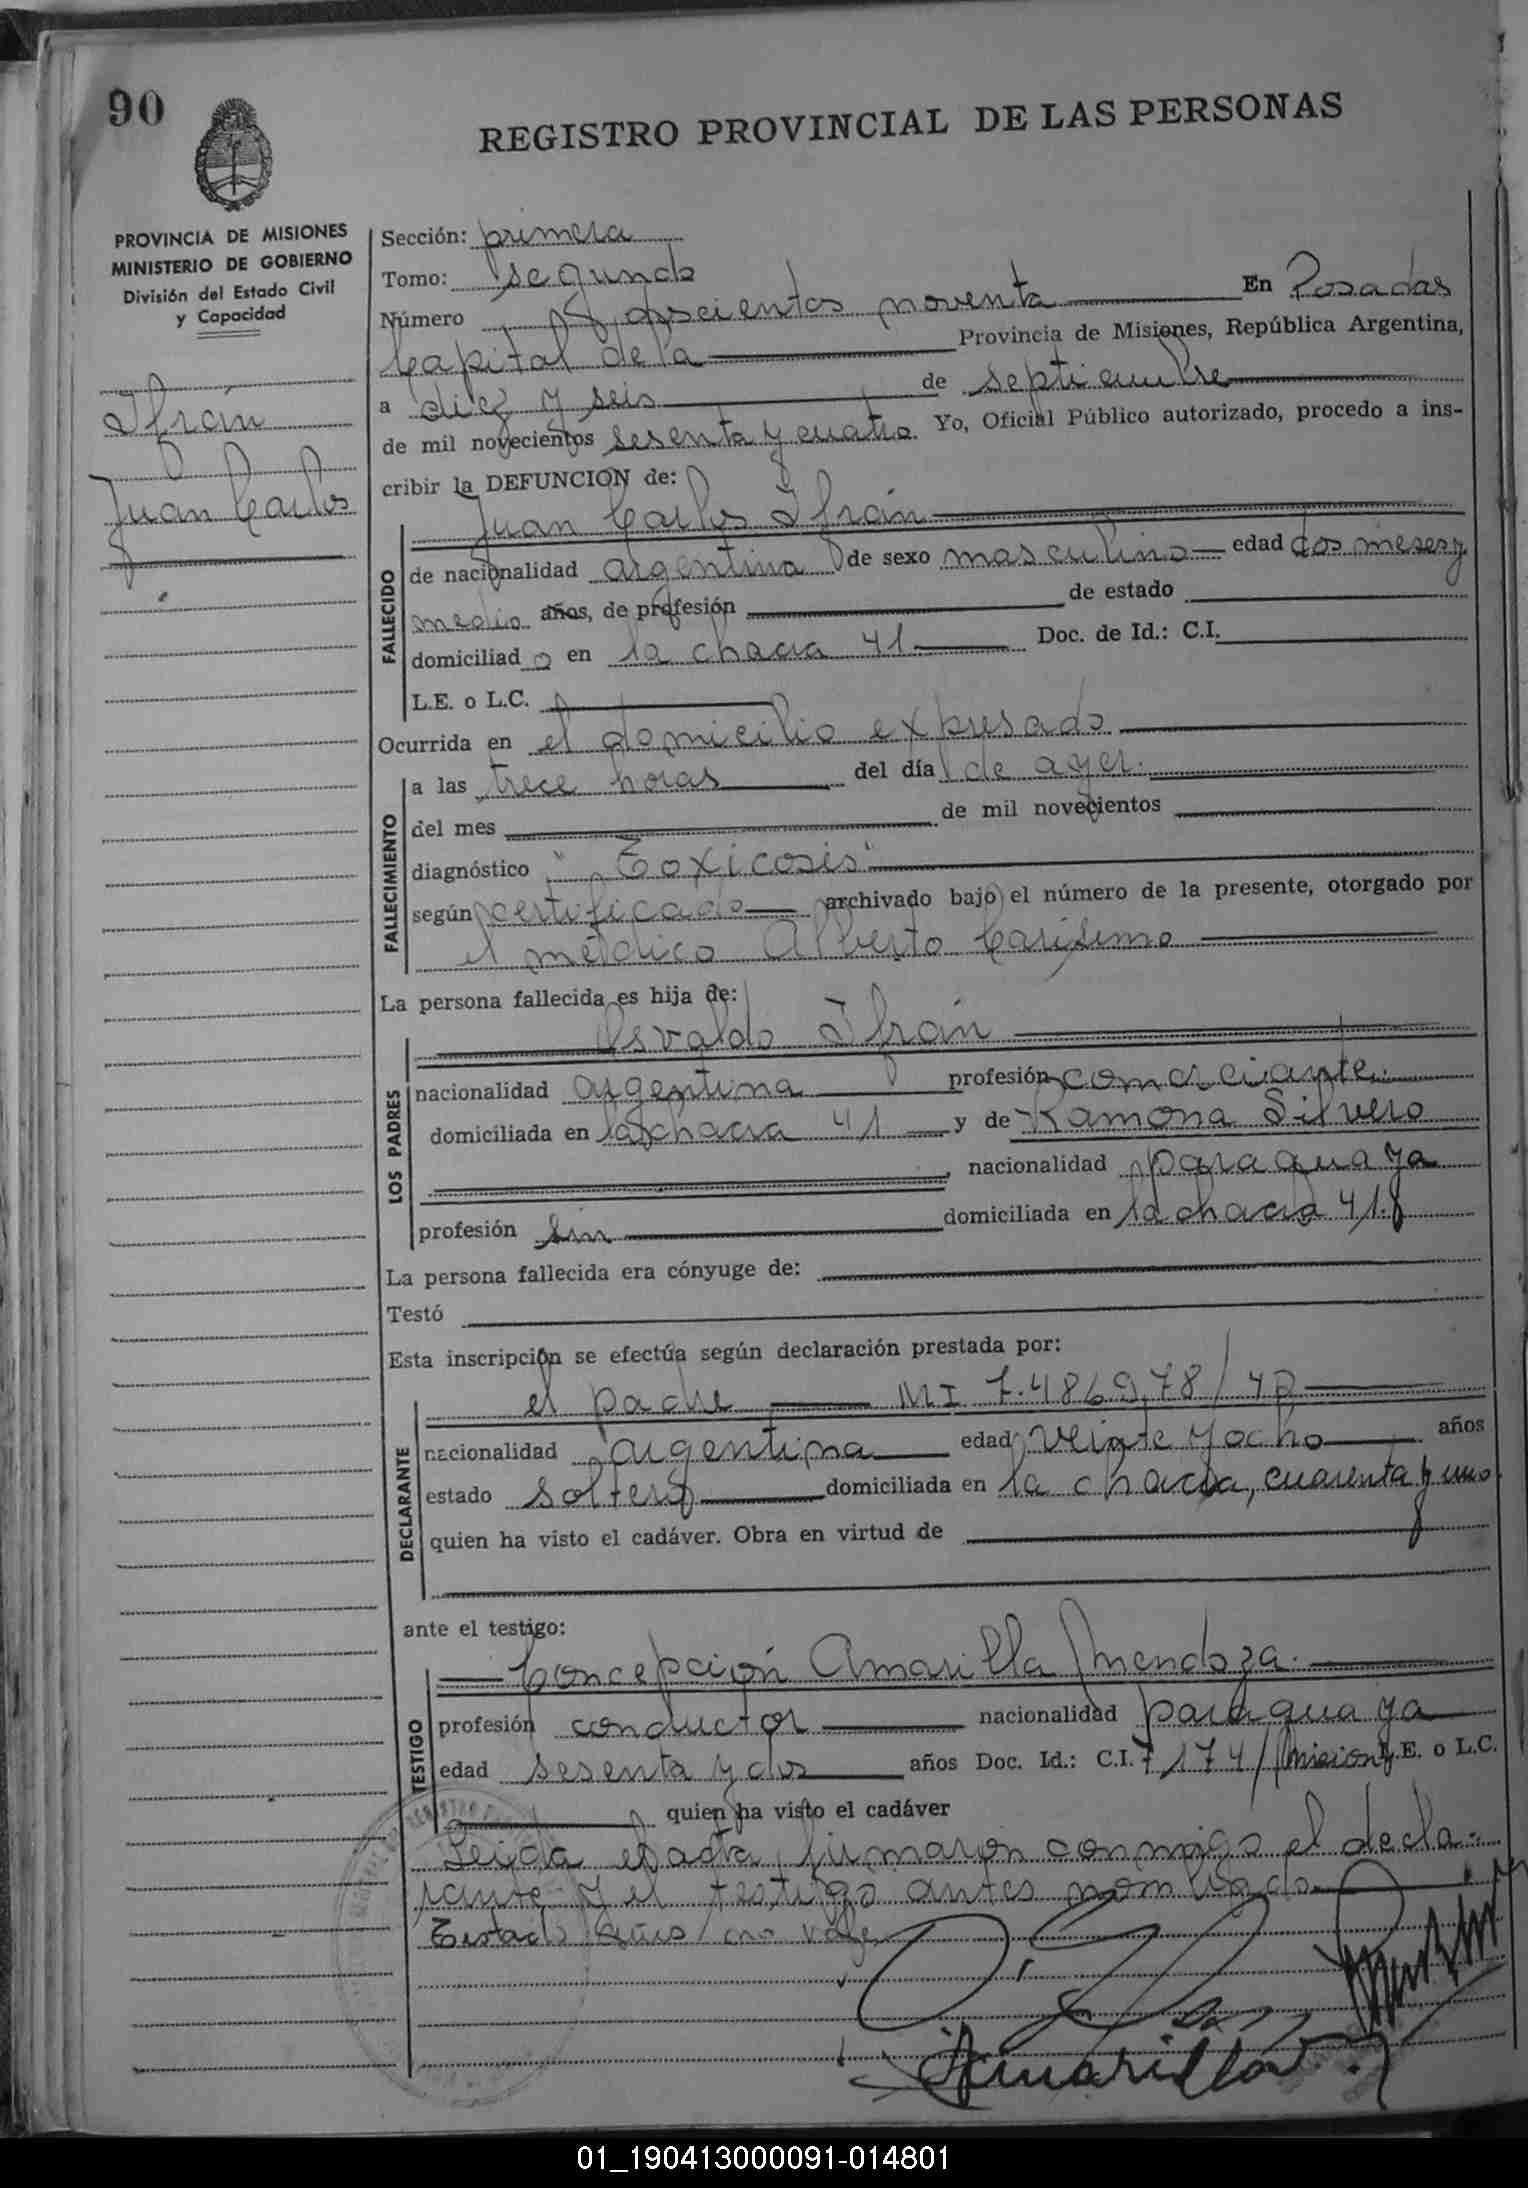 90
REGISTRO PROVINCIAL DE LAS PERSONAS
PROVINCIA DE MISIONES
MINISTERIO DE GOBIERNO
División del Estado Civil
y Capacidad
Ifrán
Juan Carlos
Sección: primera
Tomo: segundo
Número doscientos noventa En Posadas
Capital de la Provincia de Misiones, República Argentina,
a diez y seis de septiembre
de mil novecientos sesenta y cuatro. Yo, Oficial Público autorizado, procedo a ins-
cribir la DEFUNCION de:
Juan Carlos Ifrán
FALLECIDO
de nacionalidad argentina de sexo masculino edad dos meses y
medio años, de profesión de estado
domiciliado en la chacra 41 Doc. de Id.: C.I.
L.E. o L.C.
Ocurrida en el domicilio expresado
FALLECIMIENTO
a las trece horas del día de ayer.
del mes de mil novecientos
diagnóstico "Toxicosis"
según certificado archivado bajo el número de la presente, otorgado por
el médico Alberto Carísimo
La persona fallecida es hija de:
Osvaldo Ifrán
LOS PADRES
nacionalidad argentina profesión comerciante.
domiciliada en la chacra 41 y de Ramona Silvero
, nacionalidad paraguaya
profesión sin domiciliada en la chacra 41.
La persona fallecida era cónyuge de:
Testó
Esta inscripción se efectúa según declaración prestada por:
el padre MI 7.486978/
DECLARANTE
nacionalidad argentina edad veinte y ocho años
estado soltero domiciliada en la chacra, cuarenta y uno
quien ha visto el cadáver. Obra en virtud de
ante el testigo:
Concepción Amarilla Mendoza.
TESTIGO
profesión conductor nacionalidad paraguaya
edad sesenta y dos años Doc. Id.: C.I. 7174/Misiones L.E. o L.C.
quien ha visto el cadáver
Leída el acta, firmaron conmigo el decla-
rante y el testigo antes nombrado.
Testado años/no vale
Amarilla
01_190413000091-014801